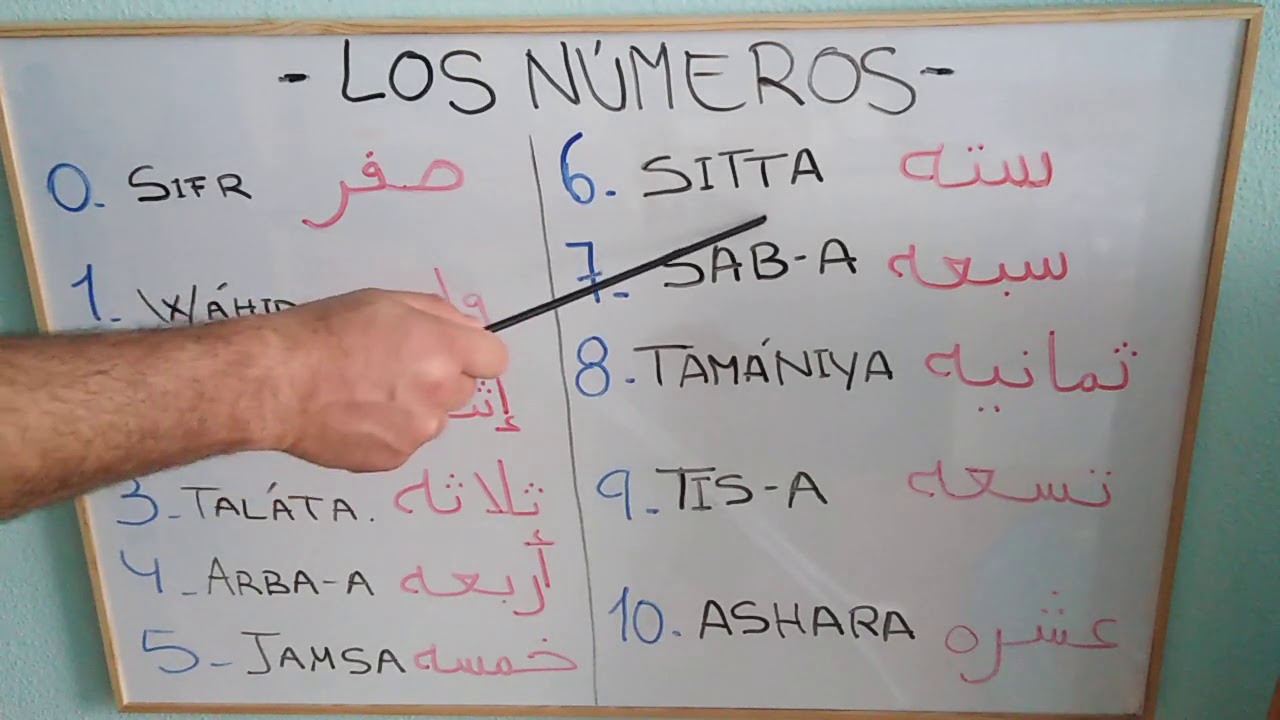 - LOS NÚMEROS -
0. SIFR صفر
1. WÁHID
3- TALÁTA. ثلاثه
4- ARBA-A أربعه
5- JAMSA خمسه
6- SITTA سته
7- SAB-A سبعه
8- TAMÁNIYA ثمانيه
9- TIS-A تسعه
10. ASHARA عشره